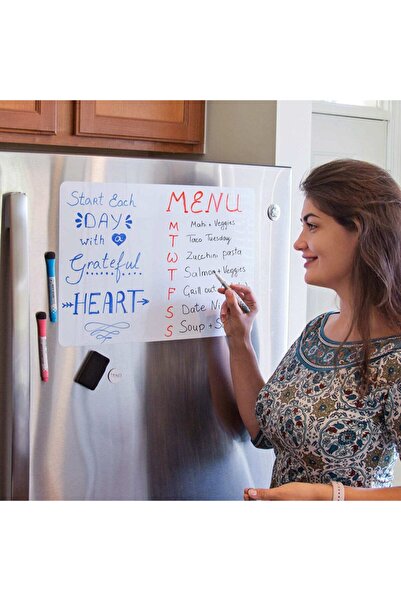 Start Each
DAY
with a
Grateful
HEART
MENU
M Mahi + Veggies
T Taco Tuesday
W Zucchini pasta
T Salmon + Veggies
F Grill out
S Date Ni
S Soup + S